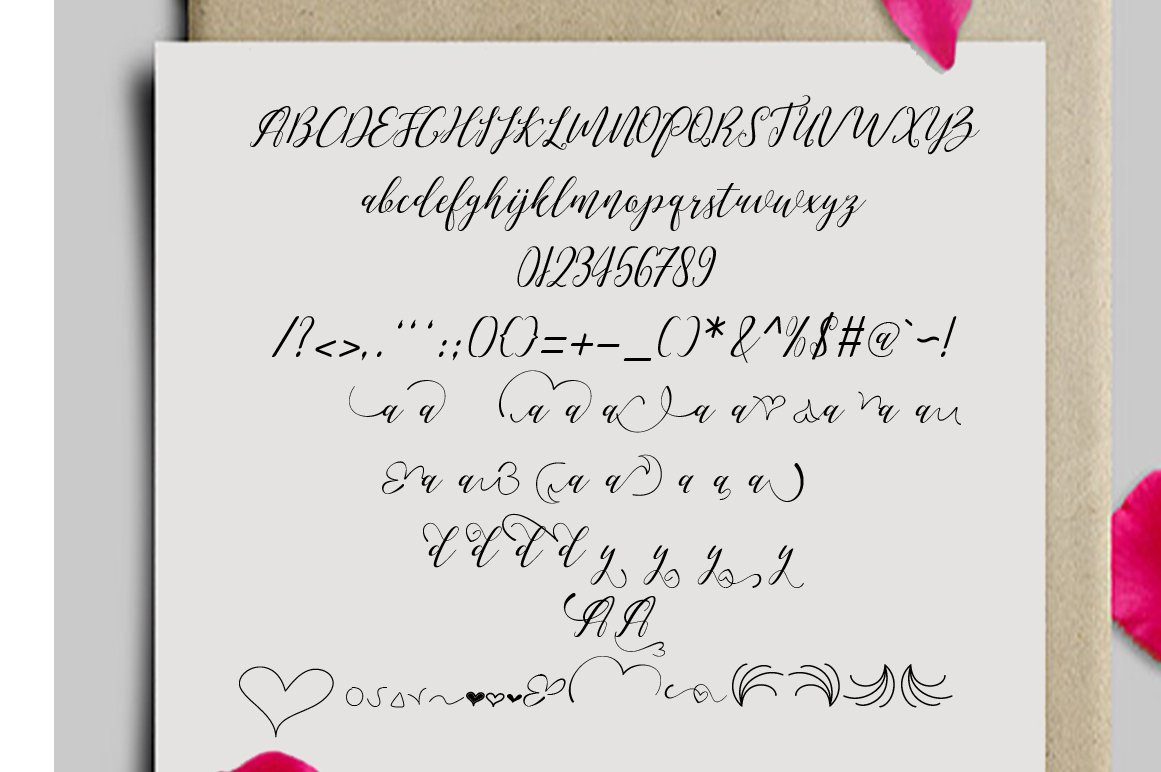 ABCDEFGHIJKLMNOPQRSTUVWXYZ
abcdefghijklmnopqrstuvwxyz
0123456789
/?<>,.‘“‘:;(){}=+-_()*&^%$#@`~!
a a a a a a a a a a
a a a a a a a
d d d d y y y y
A A